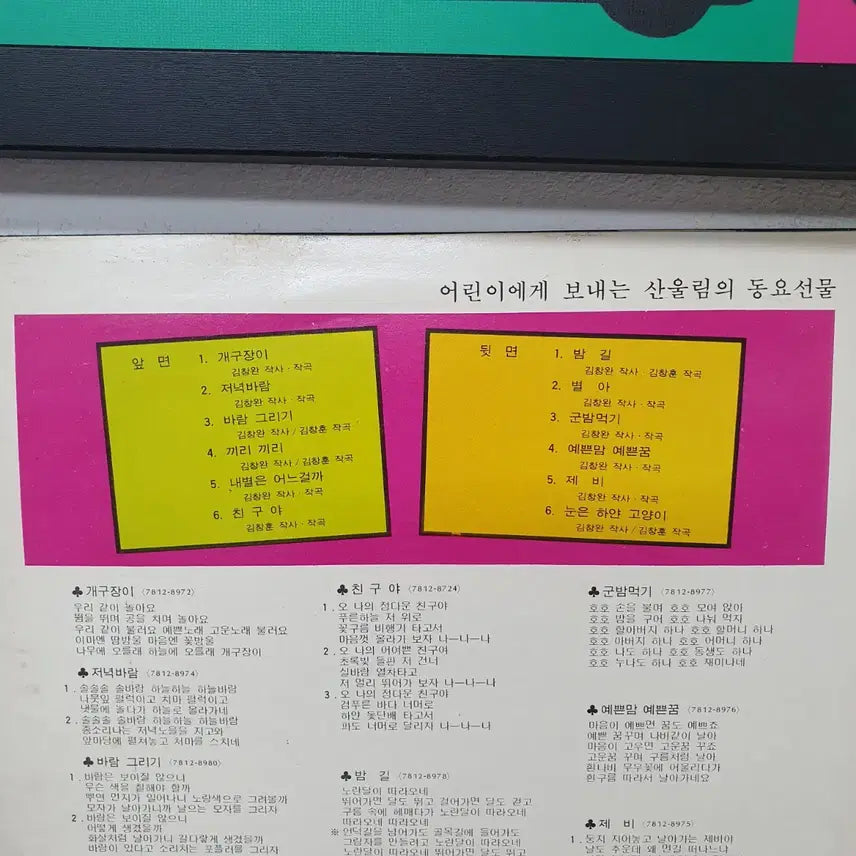 어린이에게 보내는 산울림의 동요선물
앞 면
1. 개구장이
김창완 작사·작곡
2. 저녁바람
김창완 작사·작곡
3. 바람 그리기
김창완 작사/김창훈 작곡
4. 끼리 끼리
김창완 작사/김창훈 작곡
5. 내별은 어느걸까
김창완 작사·작곡
6. 친 구 야
김창훈 작사·작곡
뒷 면
1. 밤 길
김창완 작사·김창훈 작곡
2. 별 아
김창완 작사·작곡
3. 군밤먹기
김창완 작사·작곡
4. 예쁜맘 예쁜꿈
김창완 작사·작곡
5. 제 비
김창완 작사·작곡
6. 눈은 하얀 고양이
김창완 작사/김창훈 작곡
♣개구장이 (7812-8972)
우리 같이 놀아요
뜀을 뛰며 공을 차며 놀아요
우리 같이 불러요 예쁜노래 고운노래 불러요
이마엔 땀방울 마음엔 꽃방울
나무에 오를래 하늘에 오를래 개구장이
♣저녁바람 (7812-8974)
1. 솔솔솔 솔바람 하늘하늘 하늘바람
나뭇잎 펄럭이고 치마 펄럭이고
냇물에 놀다가 하늘로 올라가네
2. 솔솔솔 솔바람 하늘하늘 하늘바람
종소리나는 저녁노을을 지고와
앞마당에 펼쳐놓고 처마를 스치네
♣바람 그리기 (7812-8980)
1. 바람은 보이질 않으니
무슨 색을 칠해야 할까
뿌연 먼지가 일어나니 노랑색으로 그려볼까
모자가 날아가니까 날으는 모자를 그리자
2. 바람은 보이질 않으니
어떻게 생겼을까
화살처럼 날아가니 길다랗게 생겼을까
바람이 있다고 소리치는 포플러를 그리자
♣친 구 야 (7812-8724)
1. 오 나의 정다운 친구야
푸른하늘 저 위로
꽃구름 비행기 타고서
마음껏 올라가 보자 나—나—나
2. 오 나의 어여쁜 친구야
초록빛 들판 저 건너
실바람 열차타고
저 멀리 뛰어가 보자 나—나—나
3. 오 나의 정다운 친구야
검푸른 바다 너머로
하얀 돛단배 타고서
파도 너머로 달리자 나—나—나
♣밤 길 (7812-8978)
노란달이 따라오네
뛰어가면 달도 뛰고 걸어가면 달도 걷고
구름 속에 헤매다가 노란달이 따라오네
따라오네 따라오네
※언덕길을 넘어가도 골목길에 들어가도
그림자를 만들려고 노란달이 따라오네
노란달이 따라오네 뛰어가면 달도 뛰고
♣군밤먹기 (7812-8977)
호호 손을 불며 호호 모여 앉아
호호 밤을 구어 호호 나눠 먹자
호호 할아버지 하나 호호 할머니 하나
호호 아버지 하나 호호 어머니 하나
호호 나도 하나 호호 동생도 하나
호호 누나도 하나 호호 재미나네
♣예쁜맘 예쁜꿈 (7812-8976)
마음이 예쁘면 꿈도 예쁘죠
예쁜 꿈꾸며 나비같이 날아
마음이 고우면 고운꿈 꾸죠
고운꿈 꾸며 구름처럼 날아
흰나비 무우꽃에 어울리다가
흰구름 따라서 날아가네요
♣제 비 (7812-8975)
1. 둥지 지어놓고 날아가는 제비야
날도 추운데 왜 먼길 떠나느냐